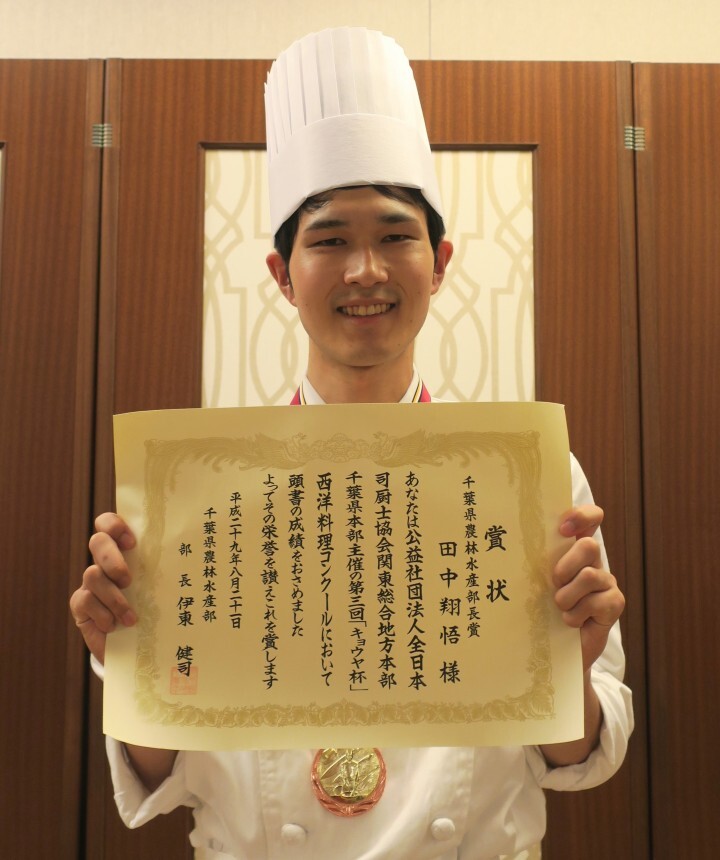 賞状
千葉県農林水産部長賞
田中翔悟 様
あなたは公益社団法人全日本
司厨士協会関東総合地方本部
千葉県本部主催の第三回「キョウヤ杯」
西洋料理コンクールにおいて
頭書の成績をおさめました
よってその栄誉を讃えこれを賞します
平成二十九年八月二十一日
千葉県農林水産部
部長 伊東 健司